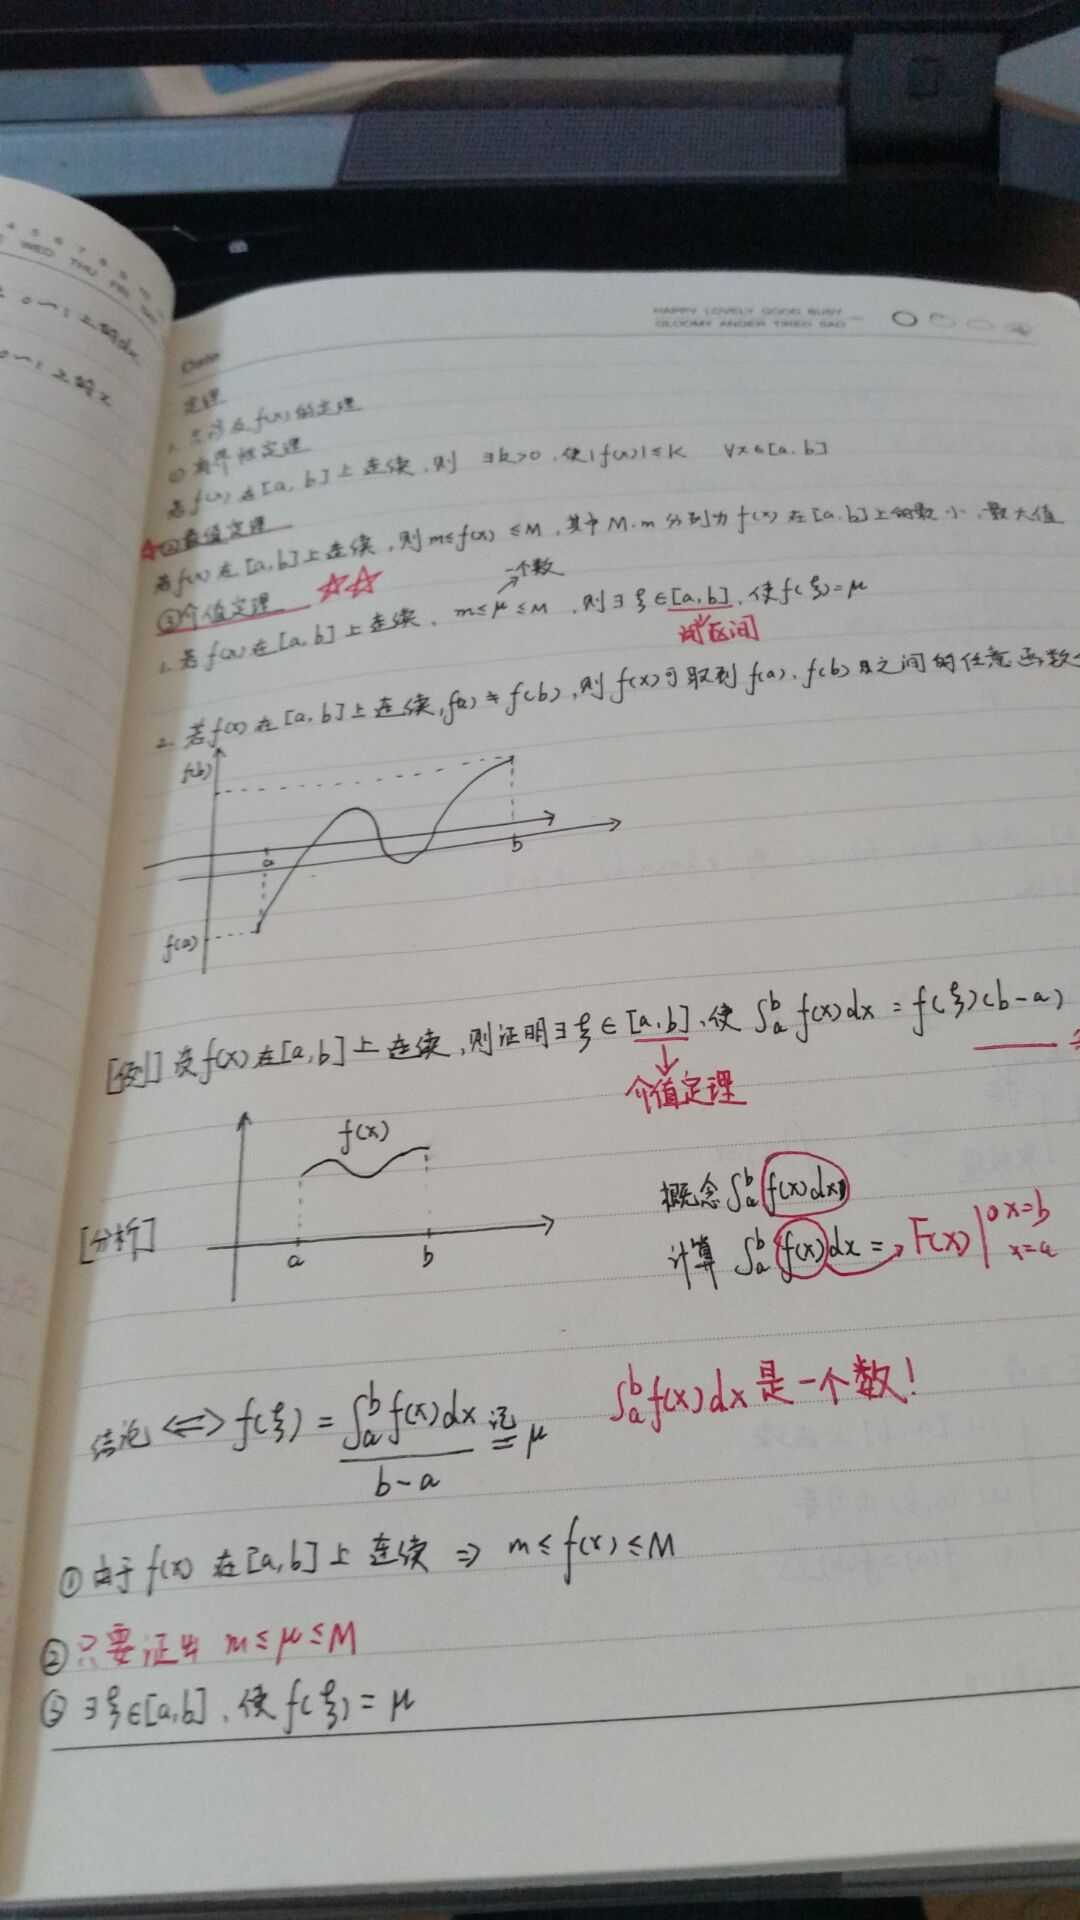 4 5 6 7 8 9 10
WED THU FRI SA
HAPPY LOVELY GOOD BUSY
GLOOMY ANGER TIRED SAD
Date
定理
1. 涉及f(x)的定理
① 有界性定理
若f(x)在[a, b]上连续,则 ∃k>0,使|f(x)|≤K ∀x∈[a, b]
☆②最值定理
若f(x)在[a, b]上连续,则m≤f(x)≤M,其中M.m分别为f(x)在[a.b]上的最小、最大值
③介值定理 ☆☆
一个数
1. 若f(x)在[a, b]上连续, m≤μ≤M,则∃ξ∈[a, b],使f(ξ)=μ
闭区间
2. 若f(x)在[a, b]上连续,f(a)≠f(b),则f(x)可取到f(a)、f(b)及之间的任意函数
f(b)
a
b
f(a)
[例] 设f(x)在[a,b]上连续,则证明∃ξ∈[a,b],使∫ₐᵇf(x)dx=f(ξ)(b-a)
介值定理
f(x)
[分析]
a b
概念∫ₐᵇf(x)dx
计算 ∫ₐᵇf(x)dx= F(x)|x=b x=a
∫ₐᵇf(x)dx是一个数!
结论⟺f(ξ)=∫ₐᵇf(x)dx/b-a 记= μ
①由于f(x)在[a,b]上连续⇒ m≤f(x)≤M
②只要证出 m≤μ≤M
③∃ξ∈[a,b],使f(ξ)=μ